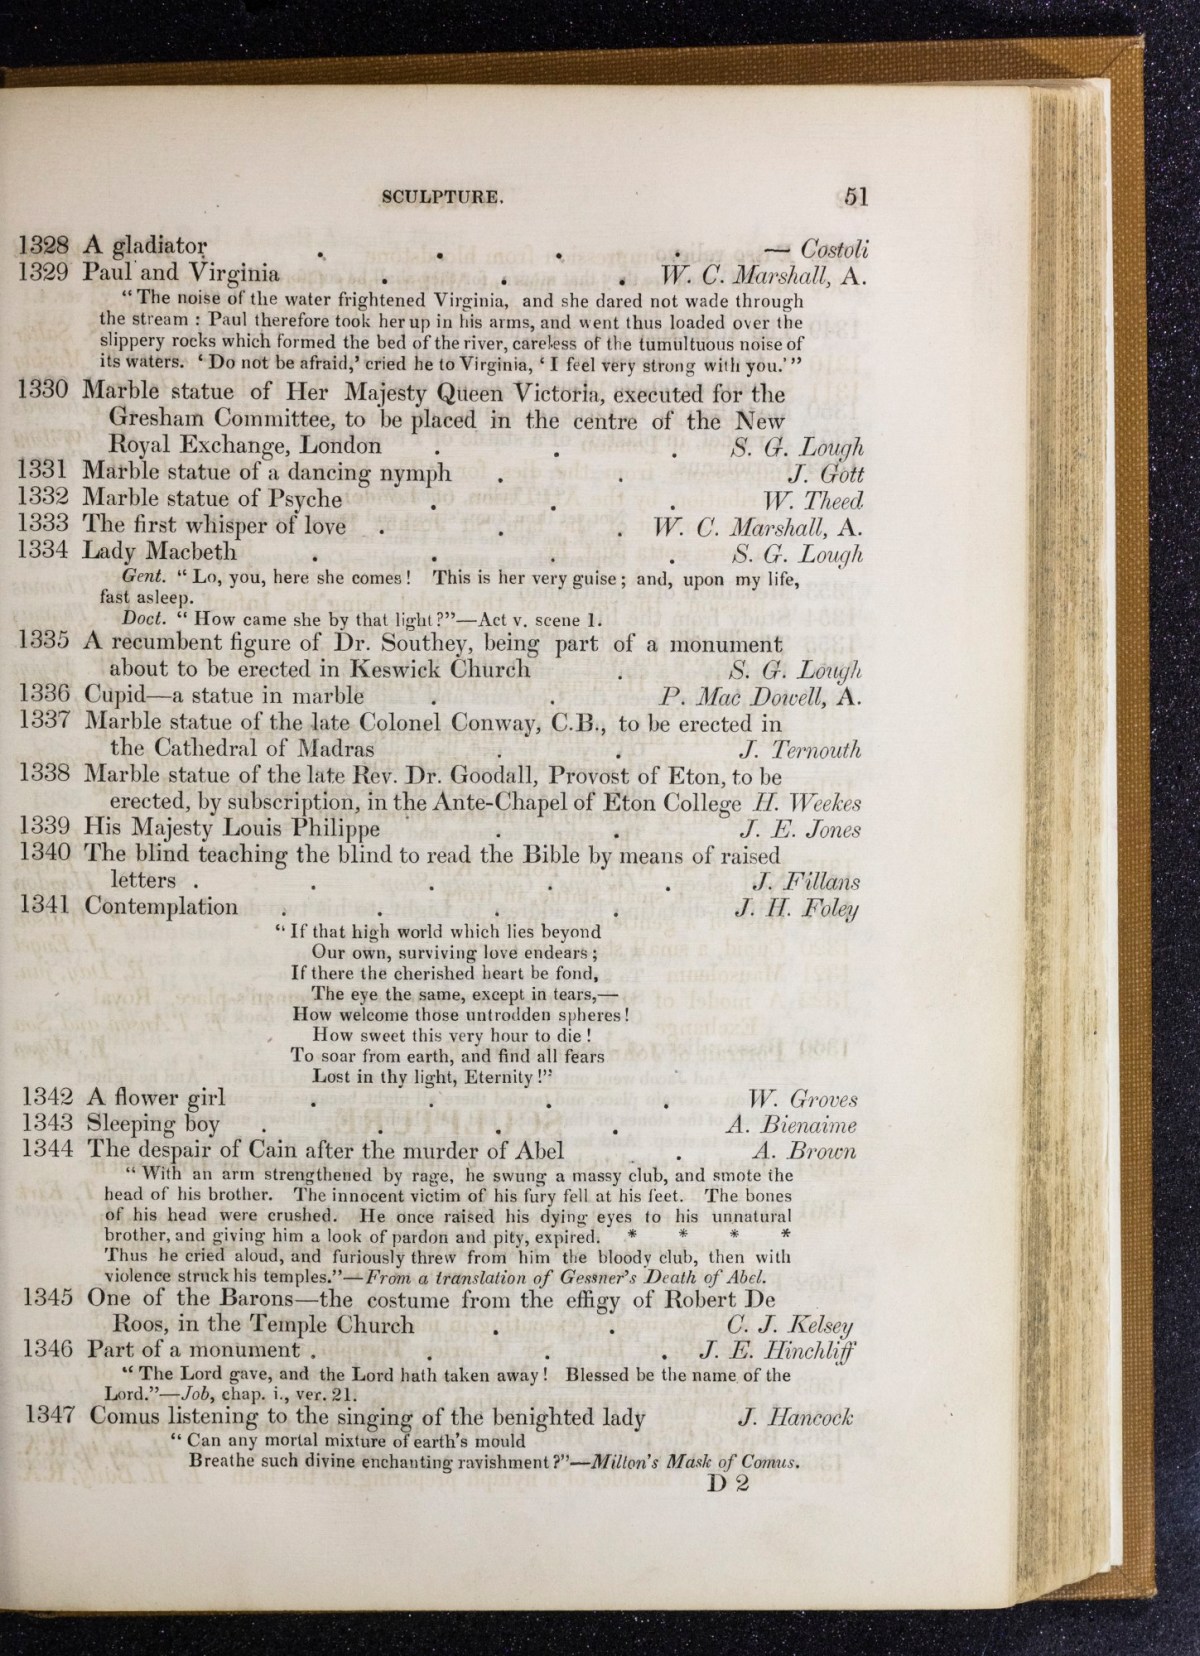 SCULPTURE. 51
1328 A gladiator . . . . — Costoli
1329 Paul and Virginia . . . W. C. Marshall, A.
“The noise of the water frightened Virginia, and she dared not wade through
the stream : Paul therefore took her up in his arms, and went thus loaded over the
slippery rocks which formed the bed of the river, careless of the tumultuous noise of
its waters. ‘Do not be afraid,’ cried he to Virginia, ‘I feel very strong with you.’”
1330 Marble statue of Her Majesty Queen Victoria, executed for the
Gresham Committee, to be placed in the centre of the New
Royal Exchange, London . . . S. G. Lough
1331 Marble statue of a dancing nymph . . J. Gott
1332 Marble statue of Psyche . . . W. Theed
1333 The first whisper of love . . . W. C. Marshall, A.
1334 Lady Macbeth . . . . S. G. Lough
Gent. “Lo, you, here she comes! This is her very guise; and, upon my life,
fast asleep.
Doct. “How came she by that light?”—Act v. scene 1.
1335 A recumbent figure of Dr. Southey, being part of a monument
about to be erected in Keswick Church . S. G. Lough
1336 Cupid—a statue in marble . . P. Mac Dowell, A.
1337 Marble statue of the late Colonel Conway, C.B., to be erected in
the Cathedral of Madras . . J. Ternouth
1338 Marble statue of the late Rev. Dr. Goodall, Provost of Eton, to be
erected, by subscription, in the Ante-Chapel of Eton College H. Weekes
1339 His Majesty Louis Philippe . . J. E. Jones
1340 The blind teaching the blind to read the Bible by means of raised
letters . . . . . J. Fillans
1341 Contemplation . . . . J. H. Foley
“If that high world which lies beyond
Our own, surviving love endears;
If there the cherished heart be fond,
The eye the same, except in tears,—
How welcome those untrodden spheres!
How sweet this very hour to die!
To soar from earth, and find all fears
Lost in thy light, Eternity!”
1342 A flower girl . . . . W. Groves
1343 Sleeping boy . . . . A. Bienaime
1344 The despair of Cain after the murder of Abel . . A. Brown
“With an arm strengthened by rage, he swung a massy club, and smote the
head of his brother. The innocent victim of his fury fell at his feet. The bones
of his head were crushed. He once raised his dying eyes to his unnatural
brother, and giving him a look of pardon and pity, expired. * * * *
Thus he cried aloud, and furiously threw from him the bloody club, then with
violence struck his temples.”—From a translation of Gessner's Death of Abel.
1345 One of the Barons—the costume from the effigy of Robert De
Roos, in the Temple Church . . C. J. Kelsey
1346 Part of a monument . . . . J. E. Hinchliff
“The Lord gave, and the Lord hath taken away! Blessed be the name of the
Lord.”—Job, chap. i., ver. 21.
1347 Comus listening to the singing of the benighted lady J. Hancock
“Can any mortal mixture of earth's mould
Breathe such divine enchanting ravishment?”—Milton's Mask of Comus.
D 2